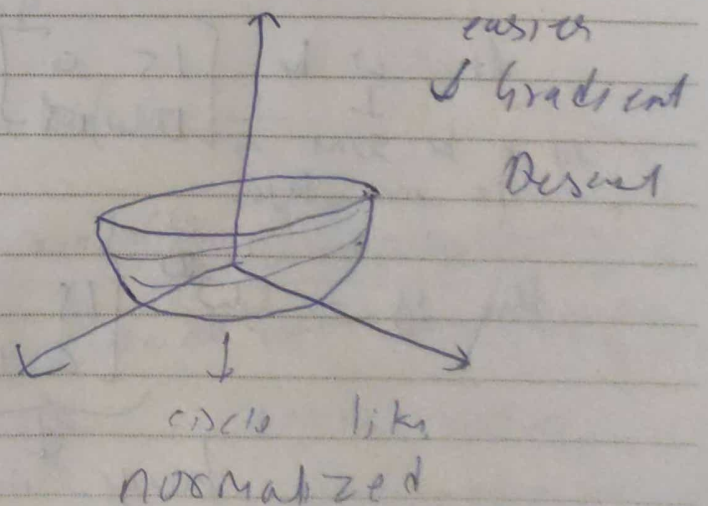 easier
↓ Gradient
Descent
circle like
normalized